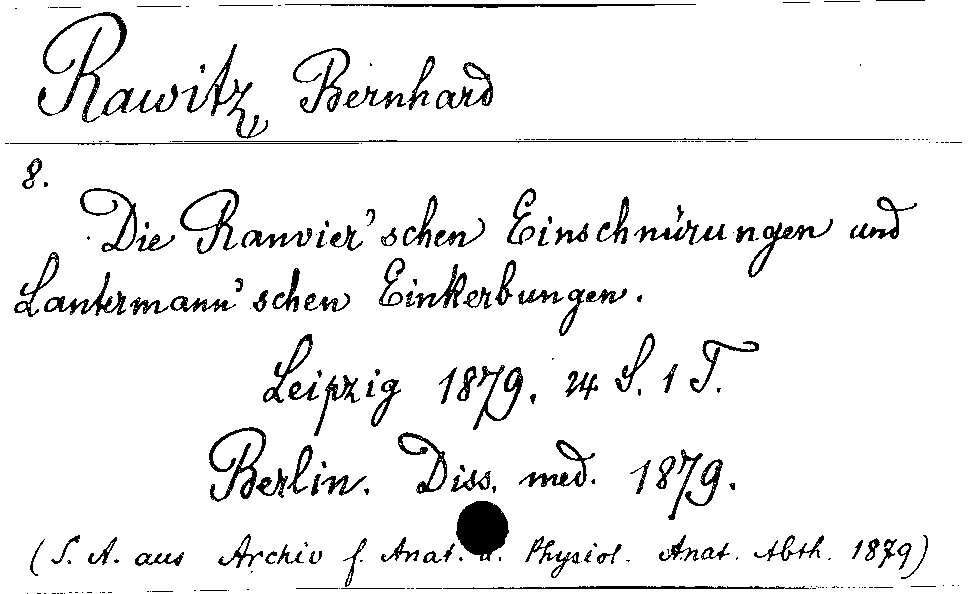 Rawitz, Bernhard
8.
Die Ranvier'schen Einschnürungen und
Lantermann'schen Einkerbungen.
Leipzig 1879. 24 S. 1 T.
Berlin. Diss. med. 1879.
(S. A. aus Archiv f. Anat. u. Physiol. Anat. Abth. 1879)